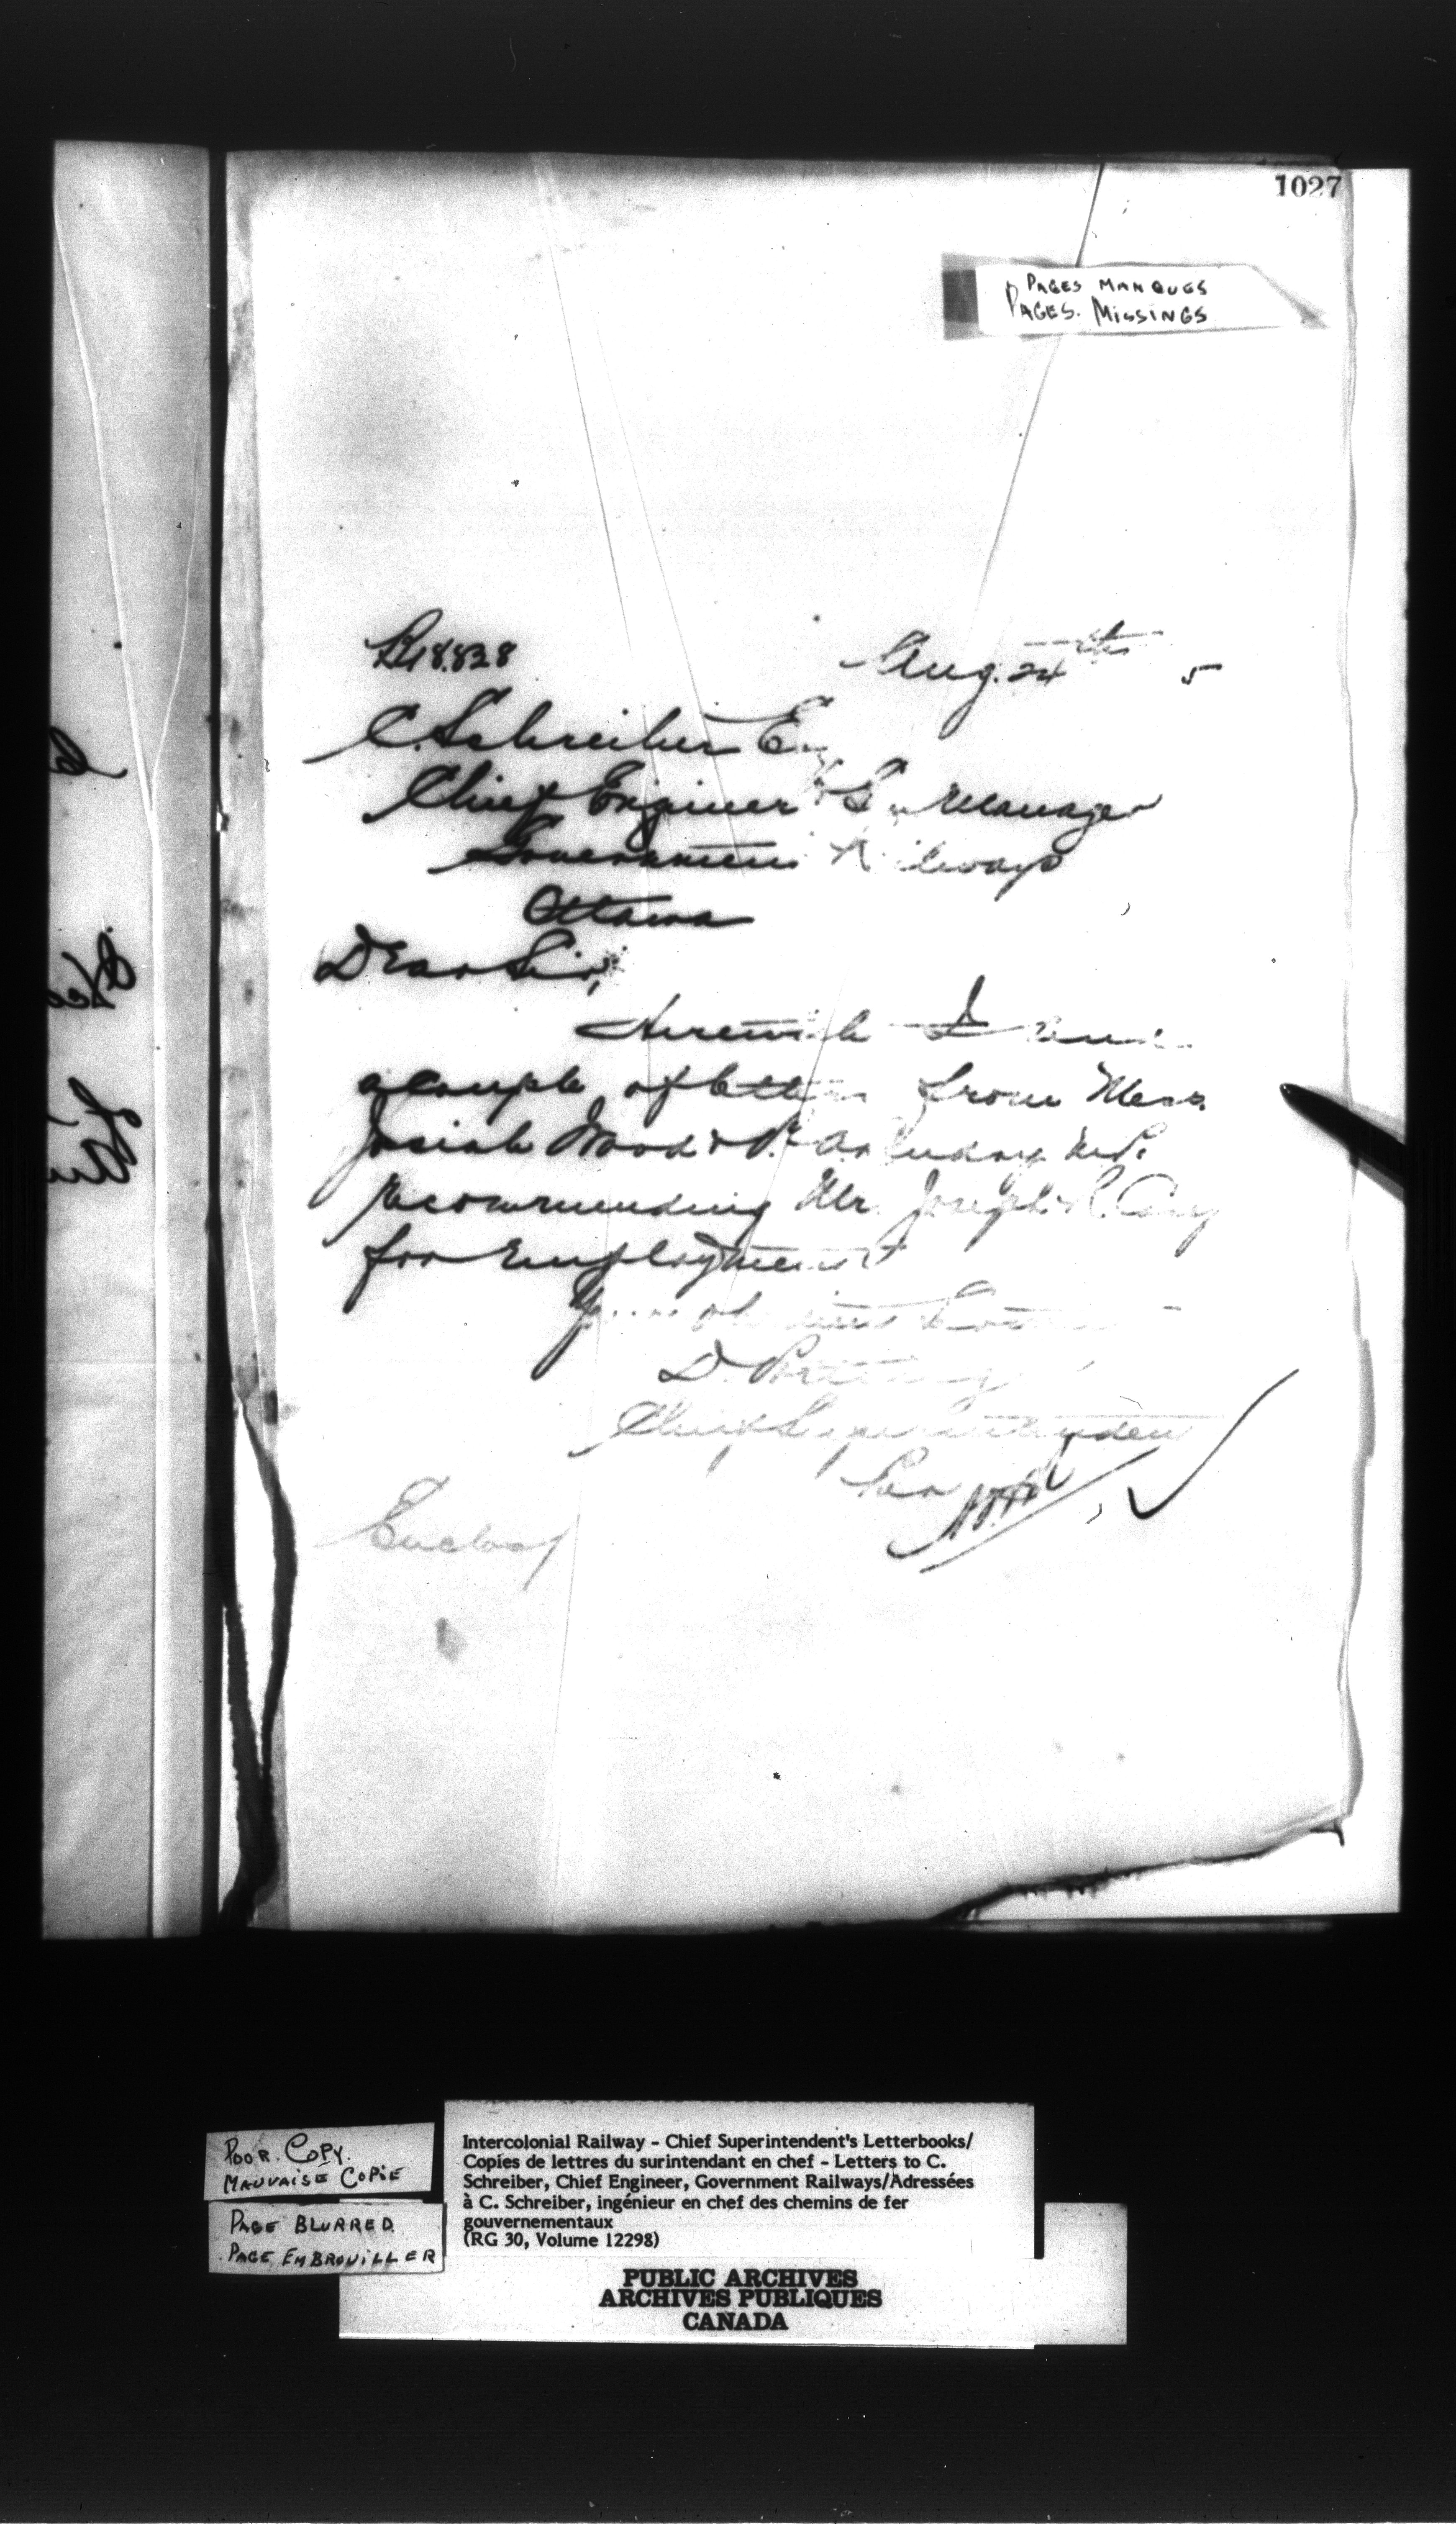 1027
PAGES MANQUES
PAGES. MISSINGS
18.828 Aug. 24th 5
C. Schreiber
Chief Engineer & Manager
Government Railways
Ottawa
Dear Sir,
Herewith I
a couple of letters from Mess.
Josiah Wood & P. A. Landry M.P.
recommending Mr. Joseph
for Employment
Yours obedient
D. Pottinger
Chief Superintendent
Per
POOR. COPY.
MAUVAISE COPIE
PAGE BLURRED
PAGE EMBROUILLER
Intercolonial Railway - Chief Superintendent's Letterbooks/
Copies de lettres du surintendant en chef - Letters to C.
Schreiber, Chief Engineer, Government Railways/Adressées
à C. Schreiber, ingénieur en chef des chemins de fer
gouvernementaux
(RG 30, Volume 12298)
PUBLIC ARCHIVES
ARCHIVES PUBLIQUES
CANADA